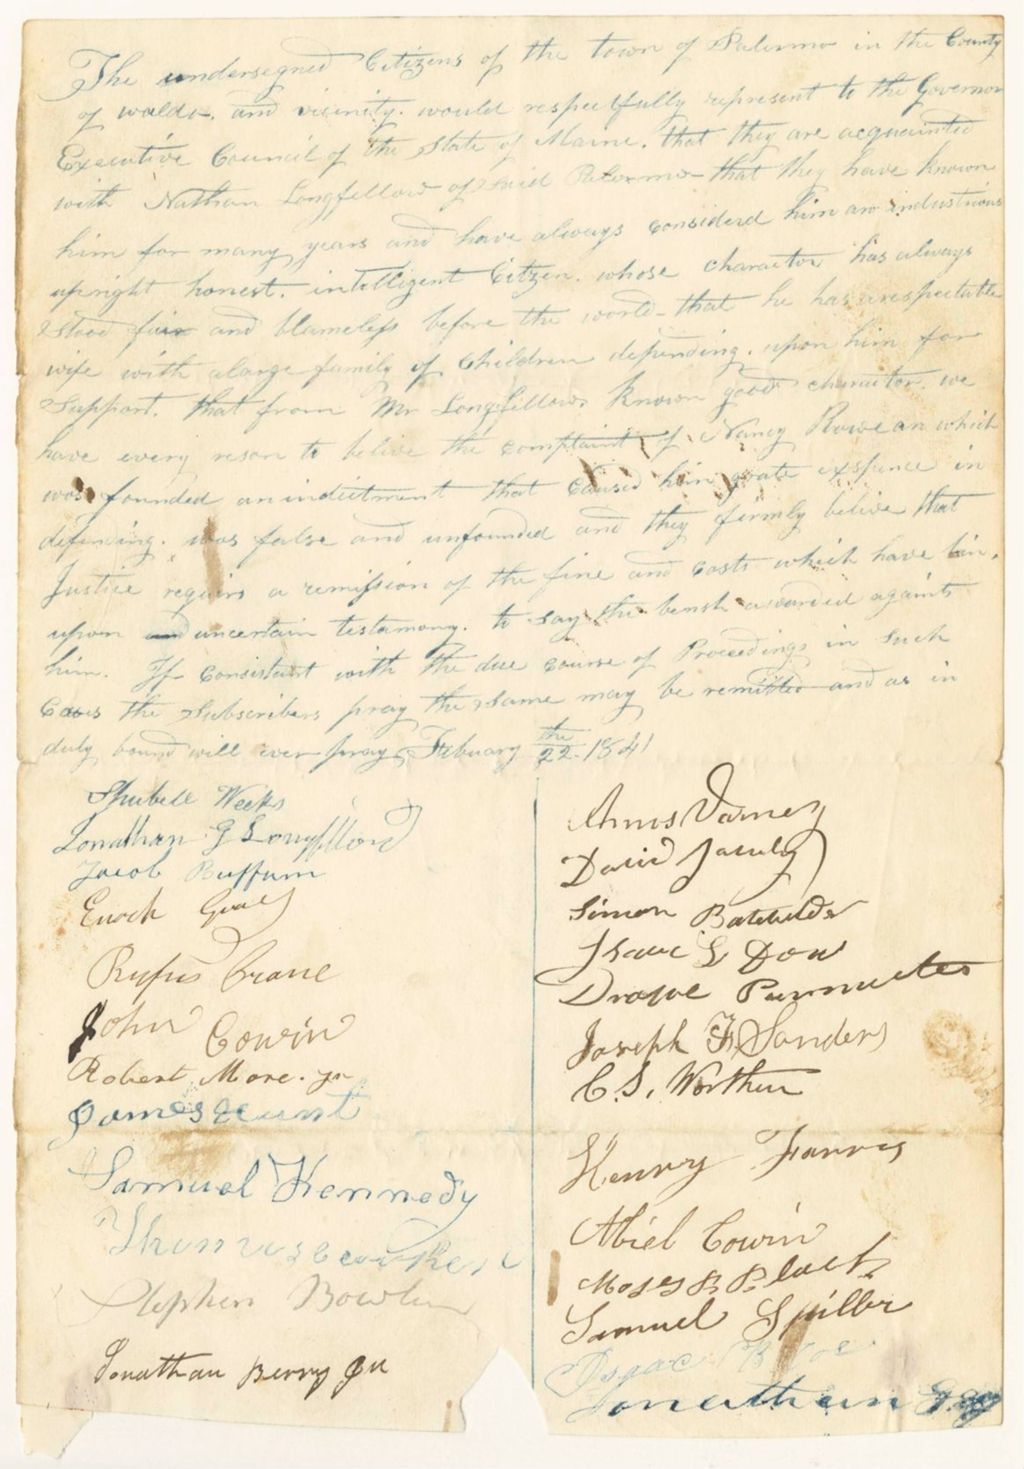 The undersegned Citizens of the town of Palermo in the County
of waldo, and vicinity. would respectfully represent to the Governor
Executive Council of the State of Maine. that they are acquainted
with Nathan Longfellow of Said Palermo that they have known
him for many years and have always considerd him an industrious
upright honest. intelligent Citizen. whose charactor has always
Stood fair and blameless before the world - that he has a respectable
wife with a large family of Children depending. upon him for
Support. that from Mr Longfellows known good charactor. we
have every reson to belive the complaint of Nancy Rowe an which
was founded an indictment that caused him grate expence in
defending. was false and unfounded and they firmly belive that
Justice requirs a remission of the fine and Costs which have bin.
upon uncertain testamony. to say the bensh awarded againts
him. If consistant with the due course of Proceedings in such
Cases the Subscribers pray the same may be remitted and as in
duty bound will ever pray Febuary the 22. 1841
Shubell Weeks
Jonathan G Longfellow
Jacob Buffum
Enoch
Rufus Crane
John Cowin
Robert More. Jr
James Hunt
Samuel Kennedy
Thomas
Stephen Bowler
Jonathan Berry Jr
Amos Varney
David
Simon Batchelder
Isaac L Dow
Drake Parmeter
Joseph F Sanders
C. S. Worthen
Henry Farris
Abiel Cowin
Moses B Black
Samuel Spiller
Isaac B
Jonathan